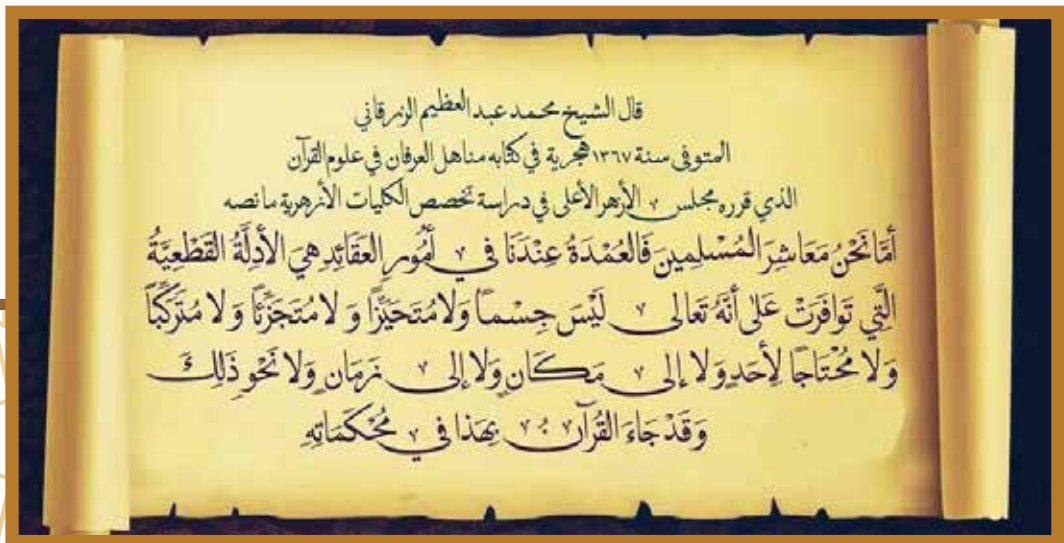 قال الشيخ محمد عبد العظيم الزرقاني
المتوفى سنة ١٣٦٧ هجرية في كتابه مناهل العرفان في علوم القرآن
الذي قرره مجلس الأزهر الأعلى في دراسة تخصص الكليات الأزهرية ما نصه
أَمَّا نَحْنُ مَعَاشِرَ المُسْلِمِينَ فَالعُمْدَةُ عِنْدَنَا فِي أُمُورِ العَقَائِدِ هِيَ الأَدِلَّةُ القَطْعِيَّةُ
الَّتِي تَوَافَرَتْ عَلَى أَنَّهُ تَعَالَى لَيْسَ جِسْمًا وَلَا مُتَحَيِّزًا وَلَا مُتَجَزِّئًا وَلَا مُتَرَكِّبًا
وَلَا مُحْتَاجًا لِأَحَدٍ وَلَا إِلَى مَكَانٍ وَلَا إِلَى زَمَانٍ وَلَا نَحْوِ ذَلِكَ
وَقَدْ جَاءَ القُرْآنُ بِهَذَا فِي مُحْكَمَاتِهِ